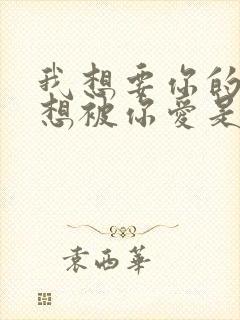 我想要你的
想被你愛是
袁西華